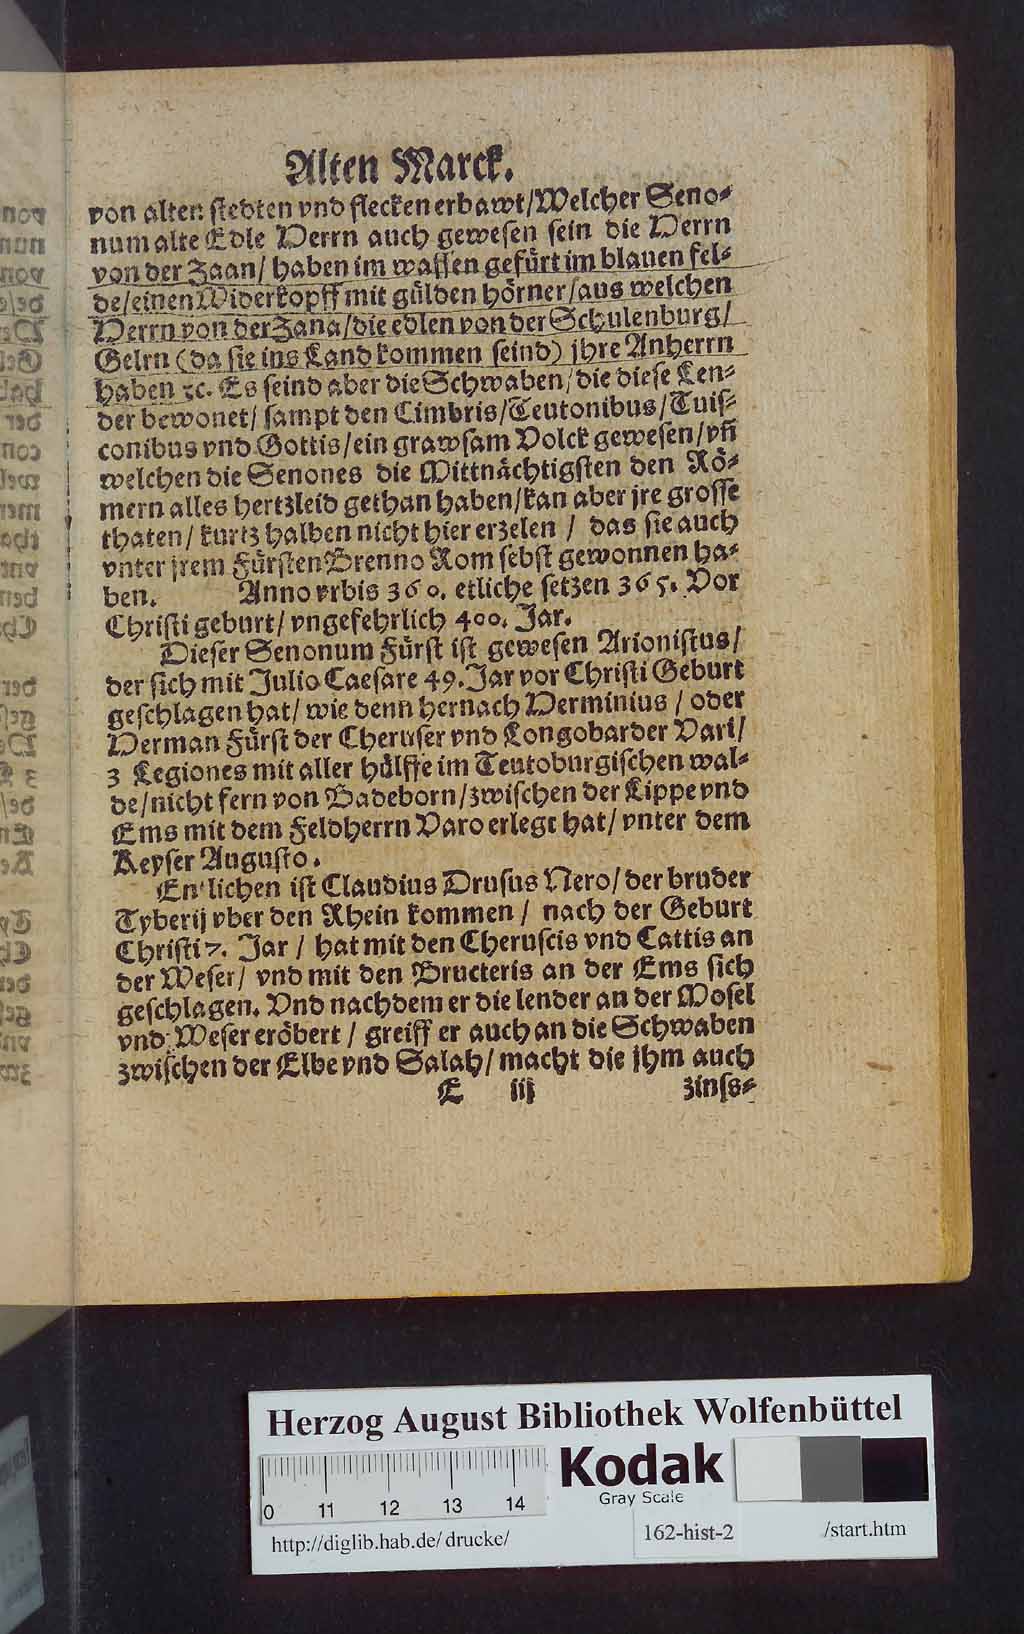 Alten Marck.
von alten stedten vnd flecken erbawt/Welcher Seno-
num alte Edle Herrn auch gewesen sein die Herrn
von der Zaan/ haben im waffen gefürt im blauen fel-
de/einen Widerkopff mit gülden hörner/aus welchen
Herrn von der Zana/die edlen von der Schulenburg/
Gelrn (da sie ins Land kommen seind) jhre Anherrn
haben ꝛc. Es seind aber die Schwaben/die diese Len-
der bewonet/ sampt den Cimbris/Teutonibus/Tuis-
conibus vnd Gottis/ein grawsam Volck gewesen/vñ
welchen die Senones die Mittnächtigsten den Rö-
mern alles hertzleid gethan haben/kan aber jre grosse
thaten/ kurtz halben nicht hier erzelen / das sie auch
vnter jrem Fürsten Brenno Rom sebst gewonnen ha-
ben. Anno vrbis 360. etliche setzen 365. Vor
Christi geburt/ vngefehrlich 400. Jar.
Dieser Senonum Fürst ist gewesen Arionistus/
der sich mit Julio Caesare 49. Jar vor Christi Geburt
geschlagen hat/ wie denn hernach Herminius / oder
Herman Fürst der Cheruser vnd Longobarder Vari/
3 Legiones mit aller hülffe im Teutoburgischen wal-
de/nicht fern von Badeborn/zwischen der Lippe vnd
Ems mit dem Feldherrn Varo erlegt hat/ vnter dem
Keyser Augusto.
En lichen ist Claudius Drusus Nero/ der bruder
Tyberij vber den Rhein kommen / nach der Geburt
Christi 7. Jar / hat mit den Cheruscis vnd Cattis an
der Weser/ vnd mit den Bructeris an der Ems sich
geschlagen. Vnd nachdem er die lender an der Mosel
vnd Weser eröbert / greiff er auch an die Schwaben
zwischen der Elbe vnd Salah/ macht die jhm auch
E iij zinss-
Herzog August Bibliothek Wolfenbüttel
0 11 12 13 14
Kodak
Gray Scale
http://diglib.hab.de/drucke/ 162-hist-2 /start.htm